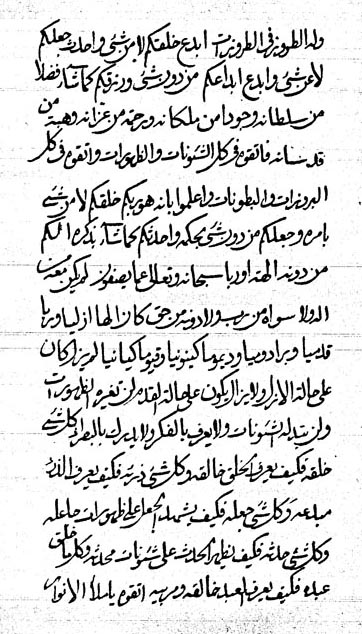 وله الطرز في الطرزيات ابدع خلقتكم لا من شئ واحدث جعلكم
لا عن شئ وابدع ابداعكم من دون شئ ورزقكم كما شاء فضلا
من سلطانه وجودا من ملكانه ورحمة من عزانه وهبة من
قدسانه فاتقوه في كل الشئونات والظهورات واتقوه في كل
البروزات والبطونات واعلموا بانه هو ربكم خلقكم لا من شئ
بامره وجعلكم من دون شئ بحكمه واحدثكم كما شاء بذكره الكم
من دونه الها او ربا سبحانه وتعالى عما يصفون لم يكن معه من
اله ولا سواه من رب ولا دونه من حق كان الها ازليا وربا
قدميا وبرا دوبيا وديوما كينونيا وقيوما كيانيا لم يزل كان
على حالة الازل ولا يزال يكون على حالة القدم لن تغيره الظهورات
ولن تبدله الشئونات ولا يعرف بالفكر ولا يدرك بالبصر اذ كل شئ
خلقه فكيف يعرف الخلق خالقه وكل شئ ذرئه فكيف يعرف الذرء
مبدعه وكل شئ جعله فكيف يشهد الجعل على ظهورات جاعله
وكل شئ حدثه فكيف يظهر الحدث على شئونات محدثه وكل ما خلق
عبده فكيف يعرف العبد خالقه وربه اتقوه يا ملأ الانوار